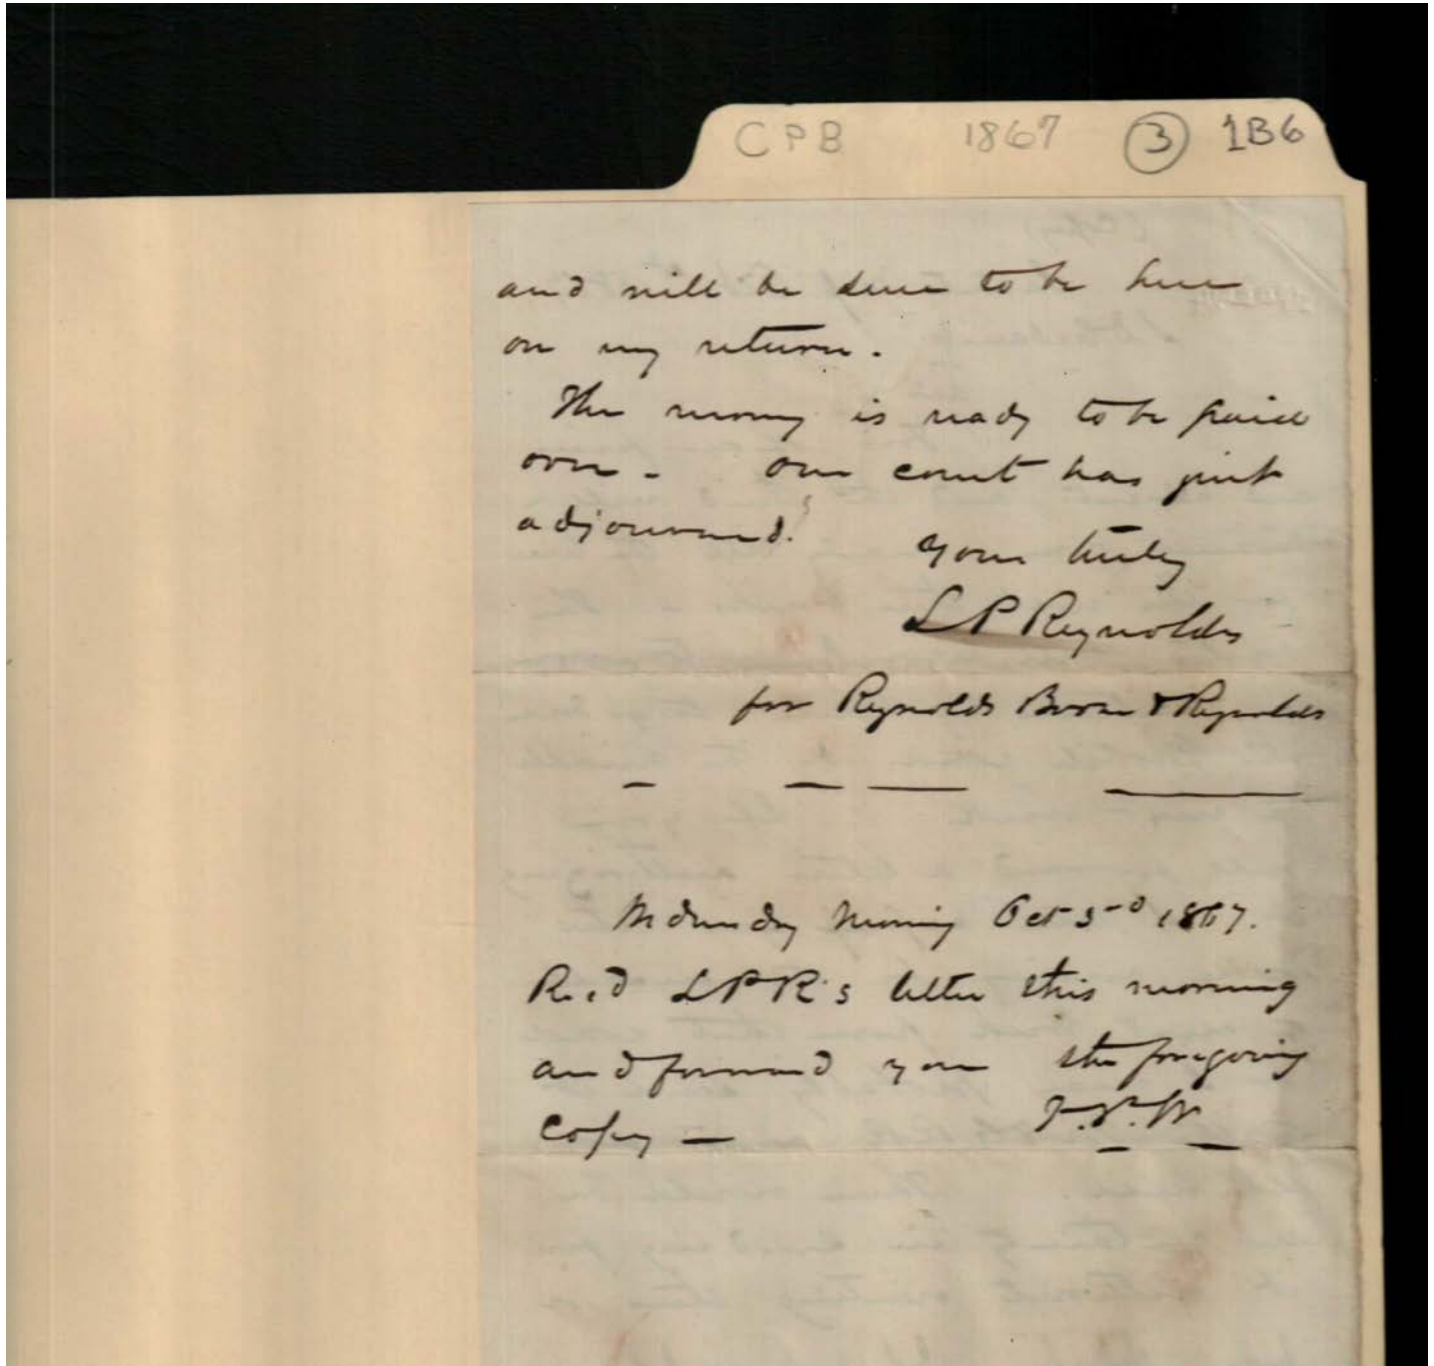 CPB 1867 3 1B6
and will be sure to be here
on my return.
The money is ready to be paid
over - Our court has just
adjourned.
Yours truly
L P Reynolds
for Reynolds & Reynolds
Wednesday Morning Oct 3rd 1867.
Rec'd LPR's letter this morning
and forward you the foregoing
Copy —